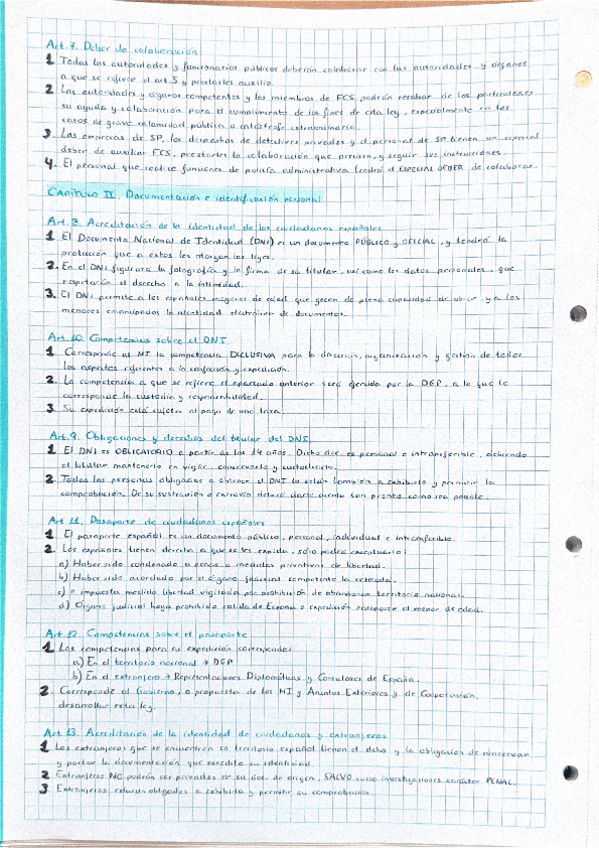 Art. 7. Deber de colaboración
1 Todas las autoridades y funcionarios públicos deberán colaborar con las autoridades y órganos
a que se refiere el art. 5 y prestarles auxilio.
2 Las autoridades y órganos competentes y los miembros de FCS podrán recabar de los particulares
su ayuda y colaboración para el cumplimiento de los fines de esta ley, especialmente en los
casos de grave calamidad pública o catástrofe extraordinaria.
3. Las empresas de SP, los despachos de detectives privados y el personal de SP tienen un especial
deber de auxiliar FCS, prestarles la colaboración que precisen, y seguir sus instrucciones.
4. El personal que realice funciones de policía administrativa tendrá el ESPECIAL DEBER de colaborar.
CAPÍTULO II. Documentación e identificación personal
Art. 8. Acreditación de la identidad de los ciudadanos españoles
1 El Documento Nacional de Identidad (DNI) es un documento PÚBLICO y OFICIAL, y tendrá la
protección que a estos les otorgan las leyes.
2. En el DNI figurará la fotografía y la firma de su titular, así como los datos personales, que
respetarán el derecho a la intimidad.
3. El DNI permite a los españoles mayores de edad que gocen de plena capacidad de obrar, y a los
menores emancipados la identidad electrónica de documentos.
Art. 10. Competencias sobre el DNI
1 Corresponde al MI la competencia EXCLUSIVA para la dirección, organización y gestión de todos
los aspectos referentes a la confección y expedición.
2. La competencia a que se refiere el apartado anterior será ejercida por la DGP, a la que le
corresponde la custodia y responsabilidad.
3. Su expedición está sujeta al pago de una tasa.
Art. 9. Obligaciones y derechos del titular del DNI
1 El DNI es OBLIGATORIO a partir de los 14 años. Dicho doc. es personal e intransferible, debiendo
el titular mantenerlo en vigor, conservarlo y custodiarlo.
2. Todas las personas obligadas a obtener el DNI lo están también a exhibirlo y permitir la
comprobación. De su sustracción o extravío deberá darse cuenta tan pronto como sea posible.
Art. 11. Pasaporte de ciudadanos españoles
1 El pasaporte español es un documento público, personal, individual e intransferible.
2. Los españoles tienen derecho a que se les expida, sólo podrá exceptuarse:
a) Haber sido condenado a penas o medidas privativas de libertad.
b) Haber sido acordado por el órgano judicial competente la retirada.
c) impuesta medida libertad vigilada por prohibición de abandonar territorio nacional.
d) Órgano judicial haya prohibido salida de España o expedición pasaporte al menor de edad.
Art. 12. Competencias sobre el pasaporte
1 Las competencias para su expedición corresponde:
a) En el territorio nacional → DGP
b) En el extranjero → Representaciones Diplomáticas y Consulares de España.
2. Corresponde al Gobierno, a propuesta de los MI y Asuntos Exteriores y de Cooperación,
desarrollar esta ley.
Art. 13. Acreditación de la identidad de ciudadanos y extranjeros
1 Los extranjeros que se encuentren en territorio español tienen el dcho y la obligación de conservar
y portar la documentación que acredite su identidad.
2 Extranjeros NO podrán ser privados de su doc. de origen, SALVO investigaciones carácter PENAL.
3 Extranjeros estarán obligados a exhibirla y permitir su comprobación.